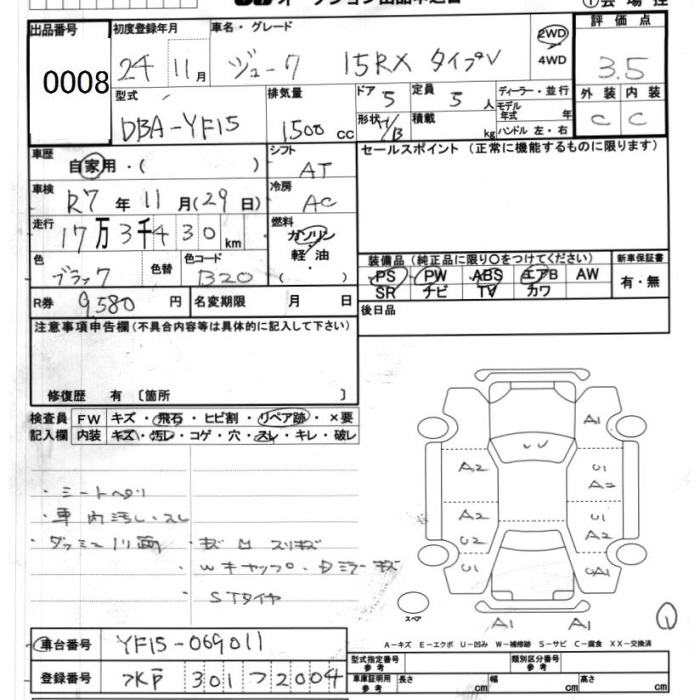 オークション出品申込書
① 会場控
出品番号 0008
初度登録年月 24年 11月
車名・グレード ジューク 15RX タイプV
2WD
4WD
評価点 3.5
外装 C 内装 C
型式 DBA-YF15
排気量 1500 cc
ドア 5
形状
定員 5 人
積載 kg
ディーラー・並行
モデル年式 年
ハンドル 左・右
車歴 自家用・( )
シフト AT
セールスポイント (正常に機能するものに限ります)
車検 R7 年 11 月(29 日)
冷房 AC
走行 17万3千430 km
燃料 ガソリン
軽・油
( )
色 ブラック 色替
色コード B20
装備品 (純正品に限り○をつけてください)
PS PW ABS エアB AW
SR ナビ TV カワ
新車保証書 有・無
R券 9,580 円
名変期限 月 日
後日品
注意事項申告欄(不具合内容等は具体的に記入して下さい)
修復歴 有〔箇所 〕
検査員記入欄
FW キズ・飛石・ヒビ割・リペア跡・×要
内装 キズ・汚レ・コゲ・穴・スレ・キレ・破レ
・シートヘタリ
・車内汚し・スレ
・ダッシュ
・キズ凹スリキズ
・Wキャップ・Dミラーキズ
STタイヤ
A1
A2 U1
A2
A2 U1
U2 A2
U1 UA1
A1 A1
スペア
①
車台番号 YF15-069011
A-キズ E-エクボ U-凹み W-補修跡 S-サビ C-腐食 XX-交換済
登録番号 水戸 301 つ 2004
型式指定番号 参考
類別区分番号 参考
車庫証明用 参考 長さ cm 幅 cm 高さ cm